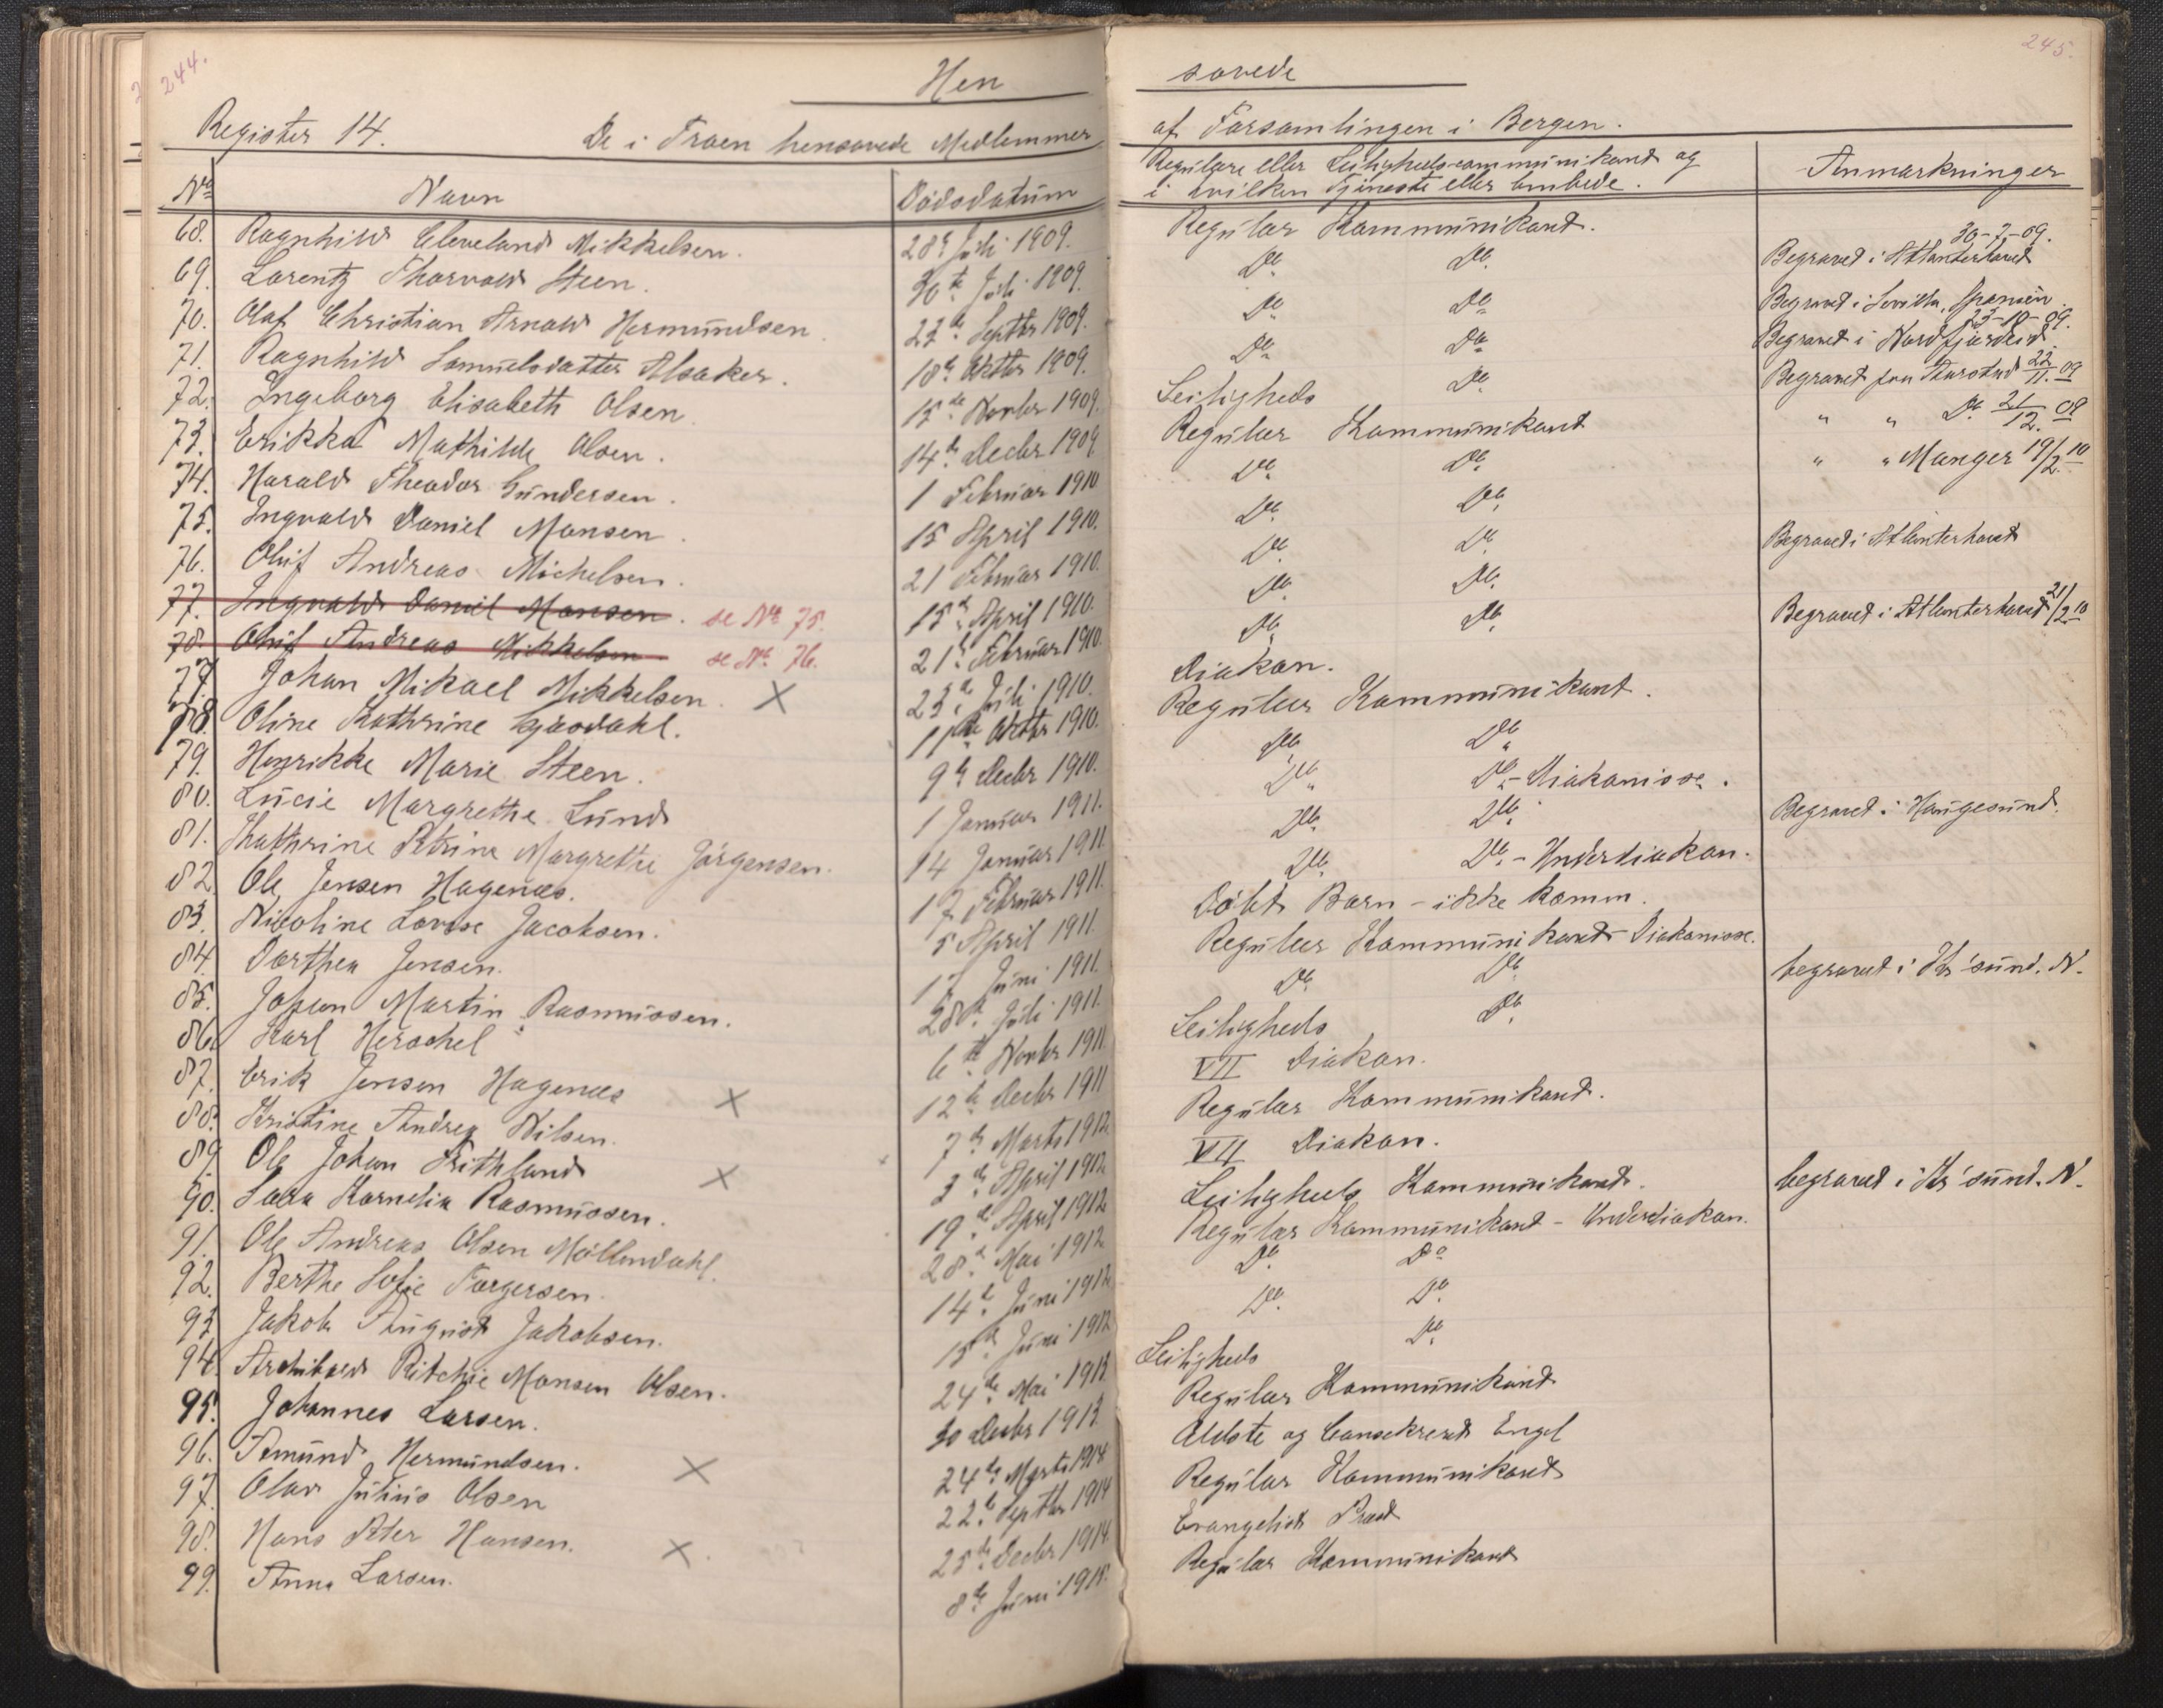 244.
Hen
Register 14. De i Troen hensovede Medlemmer
No Navn Dödsdatum
68. Ragnhild Cleveland Mikkelsen. 28de Juli 1909.
69. Lorentz Thorvald Steen. 30te Juli 1909.
70. Olaf Christian Arnold Hermundsen. 22de Septbr 1909.
71. Ragnhild Samuelsdatter Alsaker. 18de Oktbr 1909.
72. Ingeborg Elisabeth Olsen. 15de Novbr 1909.
73. Erikka Mathilde Olsen. 14de Decbr 1909.
74. Harald Theodor Gundersen. 1 Februar 1910
75. Ingvald Daniel Monsen. 15 April 1910.
76. Oluf Andreas Michelsen. 21 Februar 1910.
77. Ingvald Daniel Monsen. se No 75. 15de April 1910.
78. Oluf Andreas Mikkelsen se No 76. 21de Februar 1910.
77. Johan Mikael Mikkelsen. X 23de Juli 1910.
78. Oline Kathrine Gjösdahl. 11te Oktbr 1910.
79. Henrikke Marie Steen. 9de Decbr 1910.
80. Lucie Margrethe Lund 1 Januar 1911.
81. Kathrine Petrine Margrethe Jörgensen. 14 Januar 1911.
82. Ole Jensen Hagenæs. 17 Februar 1911.
83. Nicoline Lovise Jacobsen. 5 April 1911.
84. Dorthea Jensen. 17 Juni 1911.
85. Johan Martin Rasmussen. 28de Juli 1911.
86. Karl Herschel 6te Novbr 1911.
87. Erik Jensen Hagenæs X 12te Decbr 1911
88. Kristine Andrea Nilsen. 7de Marts 1912
89. Ole Johan Frithland X 3de April 1912
90. Sara Kornelia Rasmussen. 19de April 1912
91. Ole Andreas Olsen Möllendahl. 28de Mai 1912
92. Berthe Sofie Torgersen. 14de Juni 1912
93. Jakob August Jakobsen. 15de Juni 1912
94. Archibald Ritchie Monsen Olsen. 24de Mai 1913
95. Johannes Larsen. 30 Decbr 1913.
96. Amund Hermundsen. X 24de Marts 1914
97. Olav Julius Olsen 22de Septbr 1914
98. Hans Peter Hansen. X. 25de Decbr 1914.
99. Anna Larsen. 8de Juni 1915.
245.
sovede
af Forsamlingen i Bergen.
Regulære eller Leilighedscommunikant og
i hvilken Tjeneste eller Embede. Anmærkninger
Regulær Kommunikant.
Do. Do. Begravet i Atlanterhavet 30-7-09.
Do. Do. Begravet i Sevilla, Spanien
Do. Do. Begravet i Nordfjordeid. 23-10-09.
Leiligheds Do. Begravet fra Aarstad 22/11.09
Regulær Kommunikant " " Do. 21/12.09
Do. Do. " " Manger 19/2.10
Do. Do.
Do. Do. Begravet i Atlanterhavet
Do. Do.
Do. Do. Begravet i Atlanterhavet 21/2.10
Diakon.
Regulær Kommunikant.
Do. Do.
Do. Do. - Diakonisse.
Do. Do. Begravet i Haugesund.
Do. Do. - Underdiakon.
Döbt Barn - ikke komm.
Regulær Kommunikant - Diakonisse.
Do. Do. begravet i Kr'sund. N.
Leiligheds Do.
VII Diakon.
Regulær Kommunikant.
VII Diakon.
Leiligheds Kommunikant. begravet i Kr'sund. N.
Regulær Kommunikant - Underdiakon.
Do. Do
Do. Do.
Leiligheds Do.
Regulær Kommunikant
Ældste og Consekreret Engel
Regulær Kommunikant
Evangelist Præst
Regulær Kommunikant